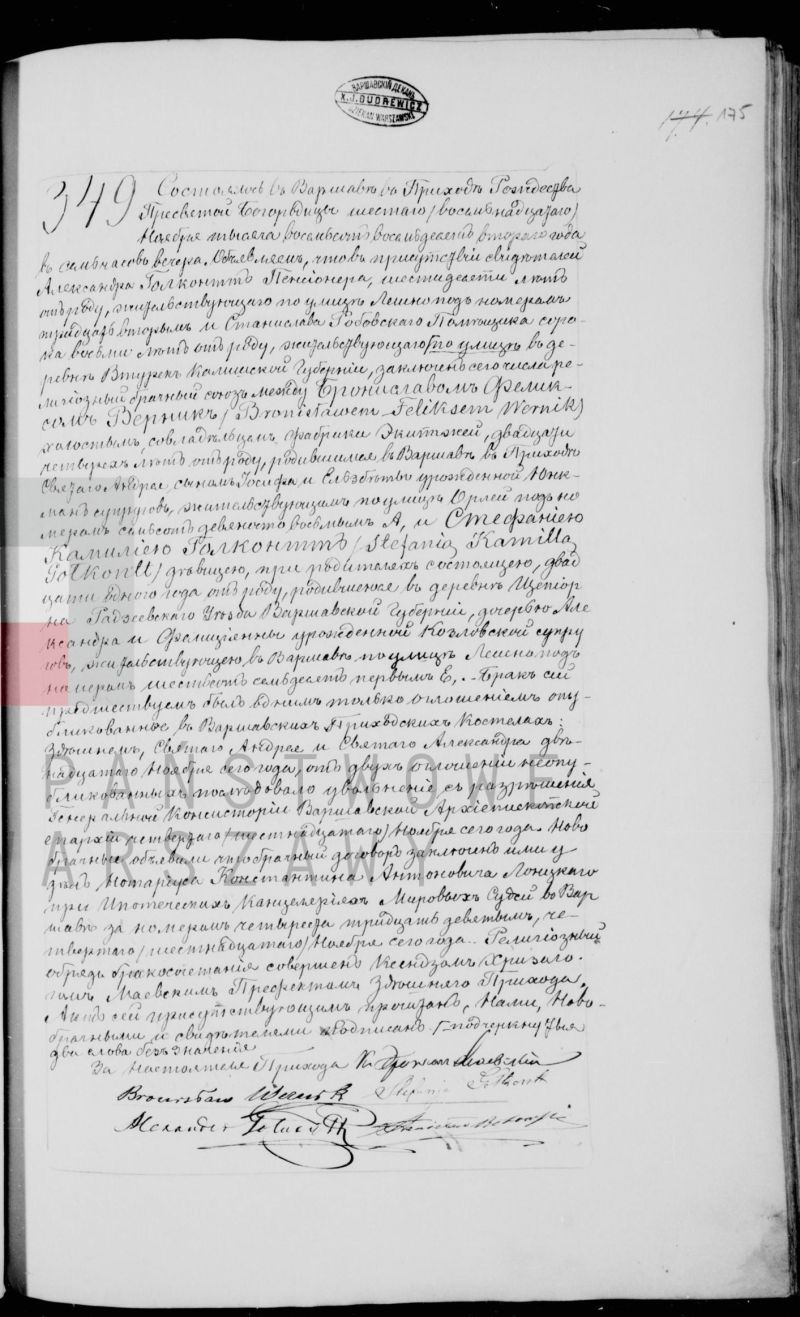 ВАРШАВСКІЙ ДЕКАНЪ
X. J. DUDREWICZ
DZIEKAN WARSZAWSKI
174. 175
349 Состоялось въ Варшавѣ въ Приходѣ Рождества
Пресвятой Богородицы шестаго /восьмнадцатаго/
Ноября тысяча восемьсотъ восемьдесятъ втораго года
въ семь часовъ вечера. Объявляемъ, что въ присутствіи свидѣтелей
Александра Голконттъ Пенсіонера, шестидесяти лѣтъ
отъ роду, жительствующаго по улицѣ Лешно подъ номеромъ
тридцать вторымъ и Станислава Помѣщика соро-
ка восьми лѣтъ отъ роду, жительствующаго /по улицѣ въ де-
ревнѣ Втурекъ Калишской Губерніи, заключенъ сего числа ре-
лигіозный брачный союзъ между Брониславомъ Фелик-
сомъ Верникъ /Bronisławem Feliksem Wernik/
холостымъ, совладѣльцемъ фабрики Экипажей, двадцати
четырехъ лѣтъ отъ роду, родившимся въ Варшавѣ въ Приходѣ
Святаго Андрея, сыномъ Іосифа и Елѣзбѣты урожденной Юнк-
манъ супруговъ, жительствующимъ по улицѣ Орлей подъ но
меромъ семьсотъ девяносто восьмымъ А, и Стефаніею
Камиллею Голконттъ /Stefanią Kamillą
Gołkontt/ дѣвицею, при родителяхъ состоящею, двад
цати одного года отъ роду, родившеюся въ деревнѣ
на Уѣзда Варшавской Губерніи, дочерью Але
ксандра и Фелиціянны урожденной Козловской супру
говъ, жительствующею въ Варшавѣ по улицѣ Лешно подъ
номеромъ шестьсотъ семьдесятъ первымъ Е,.- Бракъ сей
предшествуемъ былъ однимъ только оглашеніемъ опу-
бликованное въ Варшавскихъ Приходскихъ Костелахъ:
Здѣшнемъ, Святаго Андрея и Святаго Александра двѣ-
надцатаго Ноября сего года, отъ двухъ оглашеній неопу-
бликованныхъ послѣдовало увольненіе съ разрѣшенія
Генеральной Консисторіи Варшавской Архіепископской
епархіи четвертаго /шестнадцатаго/ Ноября сего года. Ново
брачные объявили что брачный договоръ заключенъ ими у
Нотаріуса Константина Антоновича Лонцкаго
при Ипотеческихъ Канцеляріяхъ Мировыхъ Судей въ Вар
шавѣ за номеромъ четыреста тридцать девятымъ, че-
твертаго /шестнадцатаго/ Ноября сего года.. Религіозный
обрядъ бракосочетанія совершенъ Ксендзомъ Хризого-
номъ Маевскимъ Префектомъ здѣшняго Прихода.
Актъ сей присутствующимъ прочитанъ, Нами, Ново-
брачными и свидѣтелями подписанъ /- подчеркнутыя
два слова безъ значенія
За настоятеля Прихода
Bronisław Wernik Stefania Gołkont
Alexander
PAŃSTWOWE
ARSZAWY